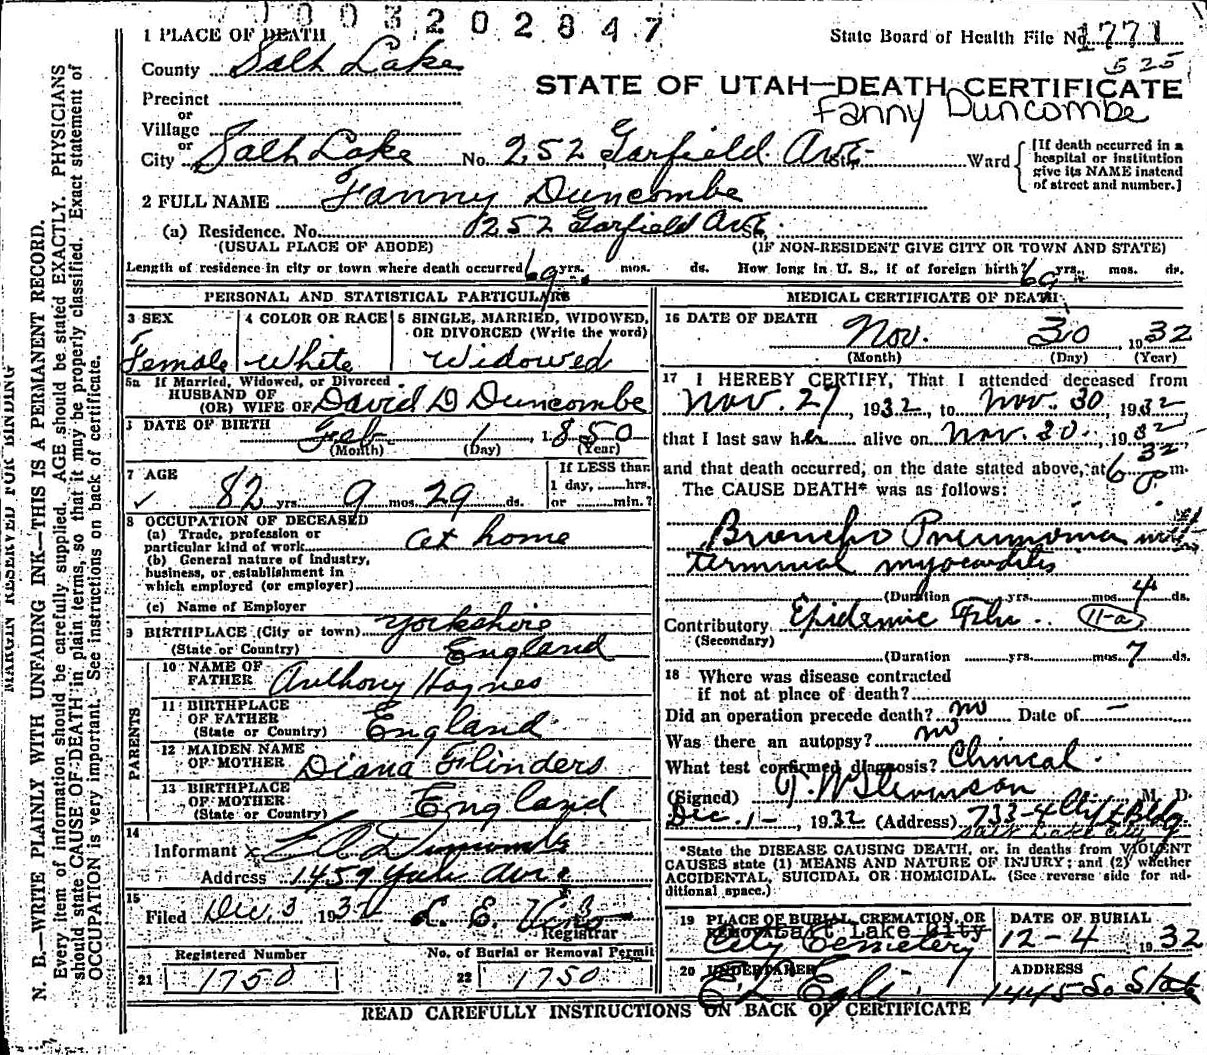 1003202847
1 PLACE OF DEATH
State Board of Health File No. 1771
525
County Salt Lake
STATE OF UTAH—DEATH CERTIFICATE
Fanny Duncombe
Precinct
or
Village
or
City Salt Lake No. 252 Garfield Ave St. Ward
[If death occurred in a
hospital or institution
give its NAME instead
of street and number.]
2 FULL NAME Fanny Duncombe
(a) Residence. No. 252 Garfield Ave.
(USUAL PLACE OF ABODE) (IF NON-RESIDENT GIVE CITY OR TOWN AND STATE)
Length of residence in city or town where death occurred 69 yrs. mos. ds. How long in U. S., if of foreign birth? 69 yrs. mos. ds.
PERSONAL AND STATISTICAL PARTICULARS
3 SEX
Female
4 COLOR OR RACE
White
5 SINGLE, MARRIED, WIDOWED,
OR DIVORCED (Write the word)
Widowed
5a If Married, Widowed, or Divorced
HUSBAND OF
(OR) WIFE OF David D Duncombe
DATE OF BIRTH Feb 1, 1850
(Month) (Day) (Year)
7 AGE
82 yrs. 9 mos. 29 ds.
If LESS than
1 day, hrs.
or min.?
8 OCCUPATION OF DECEASED
(a) Trade, profession or
particular kind of work at home
(b) General nature of industry,
business, or establishment in
which employed (or employer)
(c) Name of Employer
9 BIRTHPLACE (City or town) Yorkshire
(State or Country) England
PARENTS
10 NAME OF
FATHER Anthony Haynes
11 BIRTHPLACE
OF FATHER
(State or Country) England
12 MAIDEN NAME
OF MOTHER Diana Flinders
13 BIRTHPLACE
OF MOTHER
(State or Country) England
14
Informant x Duncombe
Address 1459 Yale Ave
15
Filed Dec. 3 1932 L. E.
Registrar
Registered Number
21 1750
No. of Burial or Removal Permit
22 1750
MEDICAL CERTIFICATE OF DEATH
16 DATE OF DEATH
Nov. 30, 1932
(Month) (Day) (Year)
17 I HEREBY CERTIFY, That I attended deceased from
Nov. 27, 1932, to Nov. 30, 1932
that I last saw her alive on Nov. 30, 1932
and that death occurred, on the date stated above, at 6 32 p m.
The CAUSE DEATH* was as follows:
Broncho Pneumonia with
terminal myocarditis
(Duration yrs. mos. 4 ds.
Contributory Epidemic Flu 11-a
(Secondary)
(Duration yrs. mos. 7 ds.
18 Where was disease contracted
if not at place of death?
Did an operation precede death? no Date of —
Was there an autopsy? no
What test confirmed diagnosis? Clinical
(Signed) T. W. Stevenson M. D.
Dec. 1 —, 1932 (Address) 733-4 Clift Bldg
Salt Lake City
*State the DISEASE CAUSING DEATH, or, in deaths from VIOLENT
CAUSES state (1) MEANS AND NATURE OF INJURY; and (2) whether
ACCIDENTAL, SUICIDAL OR HOMICIDAL. (See reverse side for ad-
ditional space.)
19 PLACE OF BURIAL, CREMATION, OR
REMOVAL Salt Lake City
City Cemetery
DATE OF BURIAL
12-4, 1932
20 UNDERTAKER
ADDRESS
1445 So State
READ CAREFULLY INSTRUCTIONS ON BACK OF CERTIFICATE
MARGIN RESERVED FOR BINDING
N. B.—WRITE PLAINLY WITH UNFADING INK—THIS IS A PERMANENT RECORD.
Every item of information should be carefully supplied. AGE should be stated EXACTLY. PHYSICIANS
should state CAUSE OF DEATH in plain terms, so that it may be properly classified. Exact statement of
OCCUPATION is very important. See instructions on back of certificate.